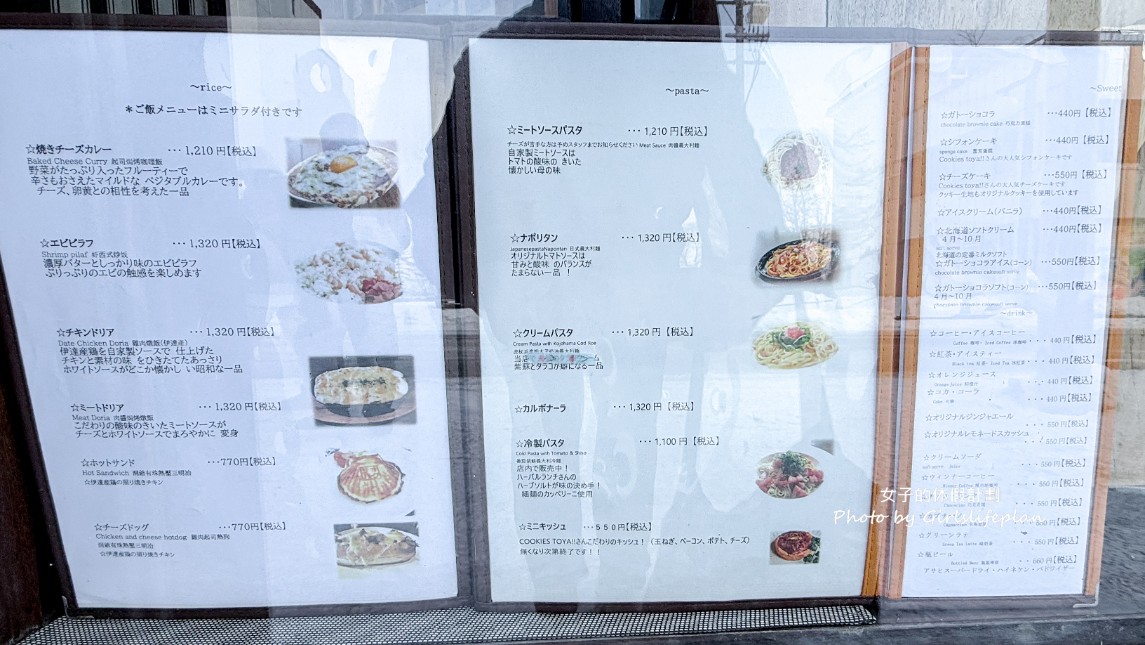 ～rice～
＊ご飯メニューはミニサラダ付きです
☆焼きチーズカレー ･･･ 1,210 円【税込】
Baked Cheese Curry 起司焗烤咖哩飯
野菜がたっぷり入ったフルーティーで
辛さもおさえたマイルドな ベジタブルカレーです。
チーズ、卵黄との相性を考えた一品
☆エビピラフ ･･･ 1,320 円【税込】
Shrimp pilaf
濃厚バターとしっかり味のエビピラフ
ぷりっぷりのエビの触感を楽しめます
☆チキンドリア ･･･ 1,320 円【税込】
Date Chicken Doria 雞肉燉飯(伊達産)
伊達産鶏を自家製ソースで 仕上げた
チキンと素材の味 をひきたてたあっさり
ホワイトソースがどこか懐かし い昭和な一品
☆ミートドリア ･･･ 1,320 円【税込】
Meat Doria 肉醬焗烤燉飯
こだわりの酸味のきいたミートソースが
チーズとホワイトソースでまろやかに 変身
☆ホットサンド ･･･770円【税込】
Hot Sandwich
☆伊達産鶏の照り焼きチキン
☆チーズドッグ ･･･770円【税込】
Chicken and cheese hotdog 雞肉起司熱狗
☆伊達産鶏の照り焼きチキン
～pasta～
☆ミートソースパスタ ･･･ 1,210 円【税込】
チーズが苦手な方は予めスタッフまでお知らせください Meat Sauce 肉醬義大利麵
自家製ミートソースは
トマトの酸味の きいた
懐かしい母の味
☆ナポリタン ･･･ 1,320 円【税込】
JapanesepastaNapolitan 日式義大利麵
オリジナルトマトソースは
甘みと酸味 のバランスが
たまらない一品 ！
☆クリームパスタ ･･･ 1,320 円 【税込】
Cream Pasta with Kojohama Cod Roe
紫蘇とタラコが癖になる一品
☆カルボナーラ ･･･ 1,320 円 【税込】
☆冷製パスタ ･･･ 1,100 円 【税込】
Cold Pasta with Tomato & Shiso
店内で販売中！
ハーバルランチさんの
ハーブソルトが味の決め手！
細麺のカッペリーニ使用
☆ミニキッシュ ･･･５５０円【税込】
COOKIES TOYA!!さんこだわりのキッシュ！（玉ねぎ、ベーコン、ポテト、チーズ）
無くなり次第終了です！！
～Sweet
☆ガトーショコラ ･･･440円【税込】
chocolate brownie cake
☆シフォンケーキ ･･･440円【税込】
Cookies toya!!さんの大人気シフォンケーキです
☆チーズケーキ ･･･550円【税込】
Cookies toya!!さんの大人気チーズケーキです
クッキー生地もオリジナルクッキーを使用しています
☆アイスクリーム(バニラ) ･･･440円【税込】
☆北海道ソフトクリーム ･･･440円【税込】
４月～10月
北海道の定番ミルクソフト
☆ガトーショコラアイス(コーン) ･･･550円【税込】
☆ガトーショコラソフト(コーン) ･･･550円【税込】
４月～10月
～drink～
☆コーヒー・アイスコーヒー
･･･440円【税込】
☆紅茶・アイスティー
･･･440円【税込】
☆オレンジジュース
･･･440円【税込】
☆コカ・コーラ
･･･440円【税込】
☆オリジナルジンジャエール
･･･550円【税込】
☆オリジナルレモネードスカッシュ
･･･550円【税込】
☆クリームソーダ
･･･550円【税込】
☆ウィンナーコーヒー
･･･550円【税込】
･･･550円【税込】
☆グリーンラテ
･･･550円【税込】
☆瓶ビール
アサヒスーパードライ・ハイネケン・バドワイザー
Photo by Girlslifeplan